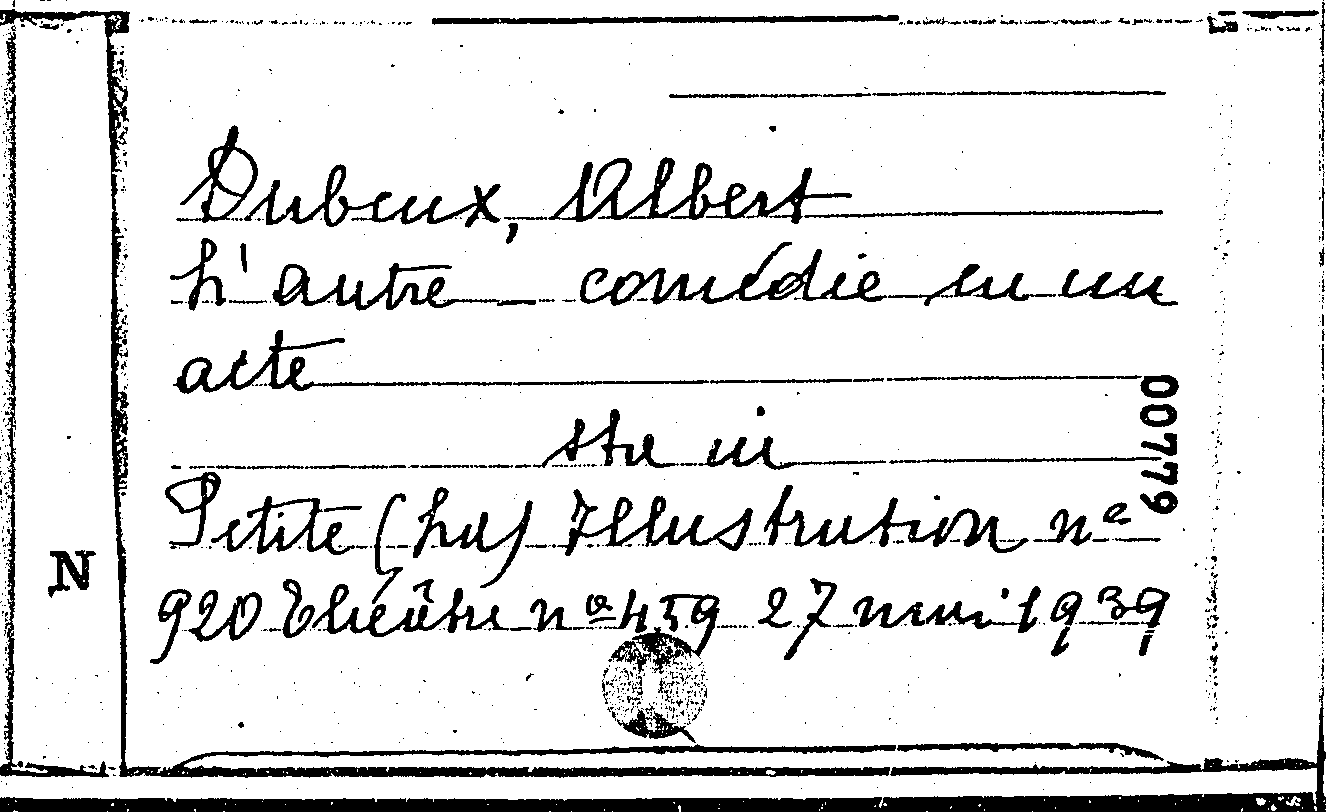 Dubeux, Albert
L'autre _ comédie en un
acte
sta in
Petite (La) Illustration nº
920 Théâtre nº 459 27 mai 1939
00779
N